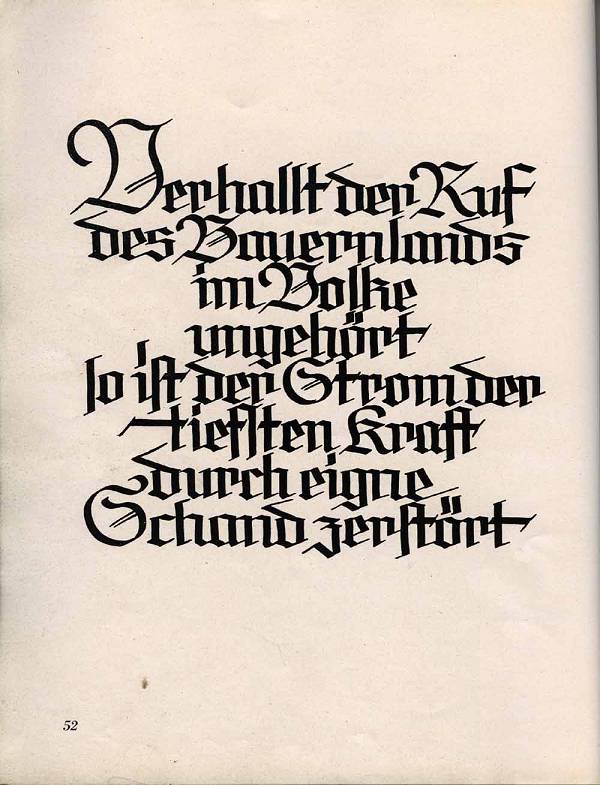 Verhallt der Ruf
des Bauernlands
im Volke
ungehört
so ist der Strom der
tiefsten Kraft
durch eigne
Schand zerstört
52